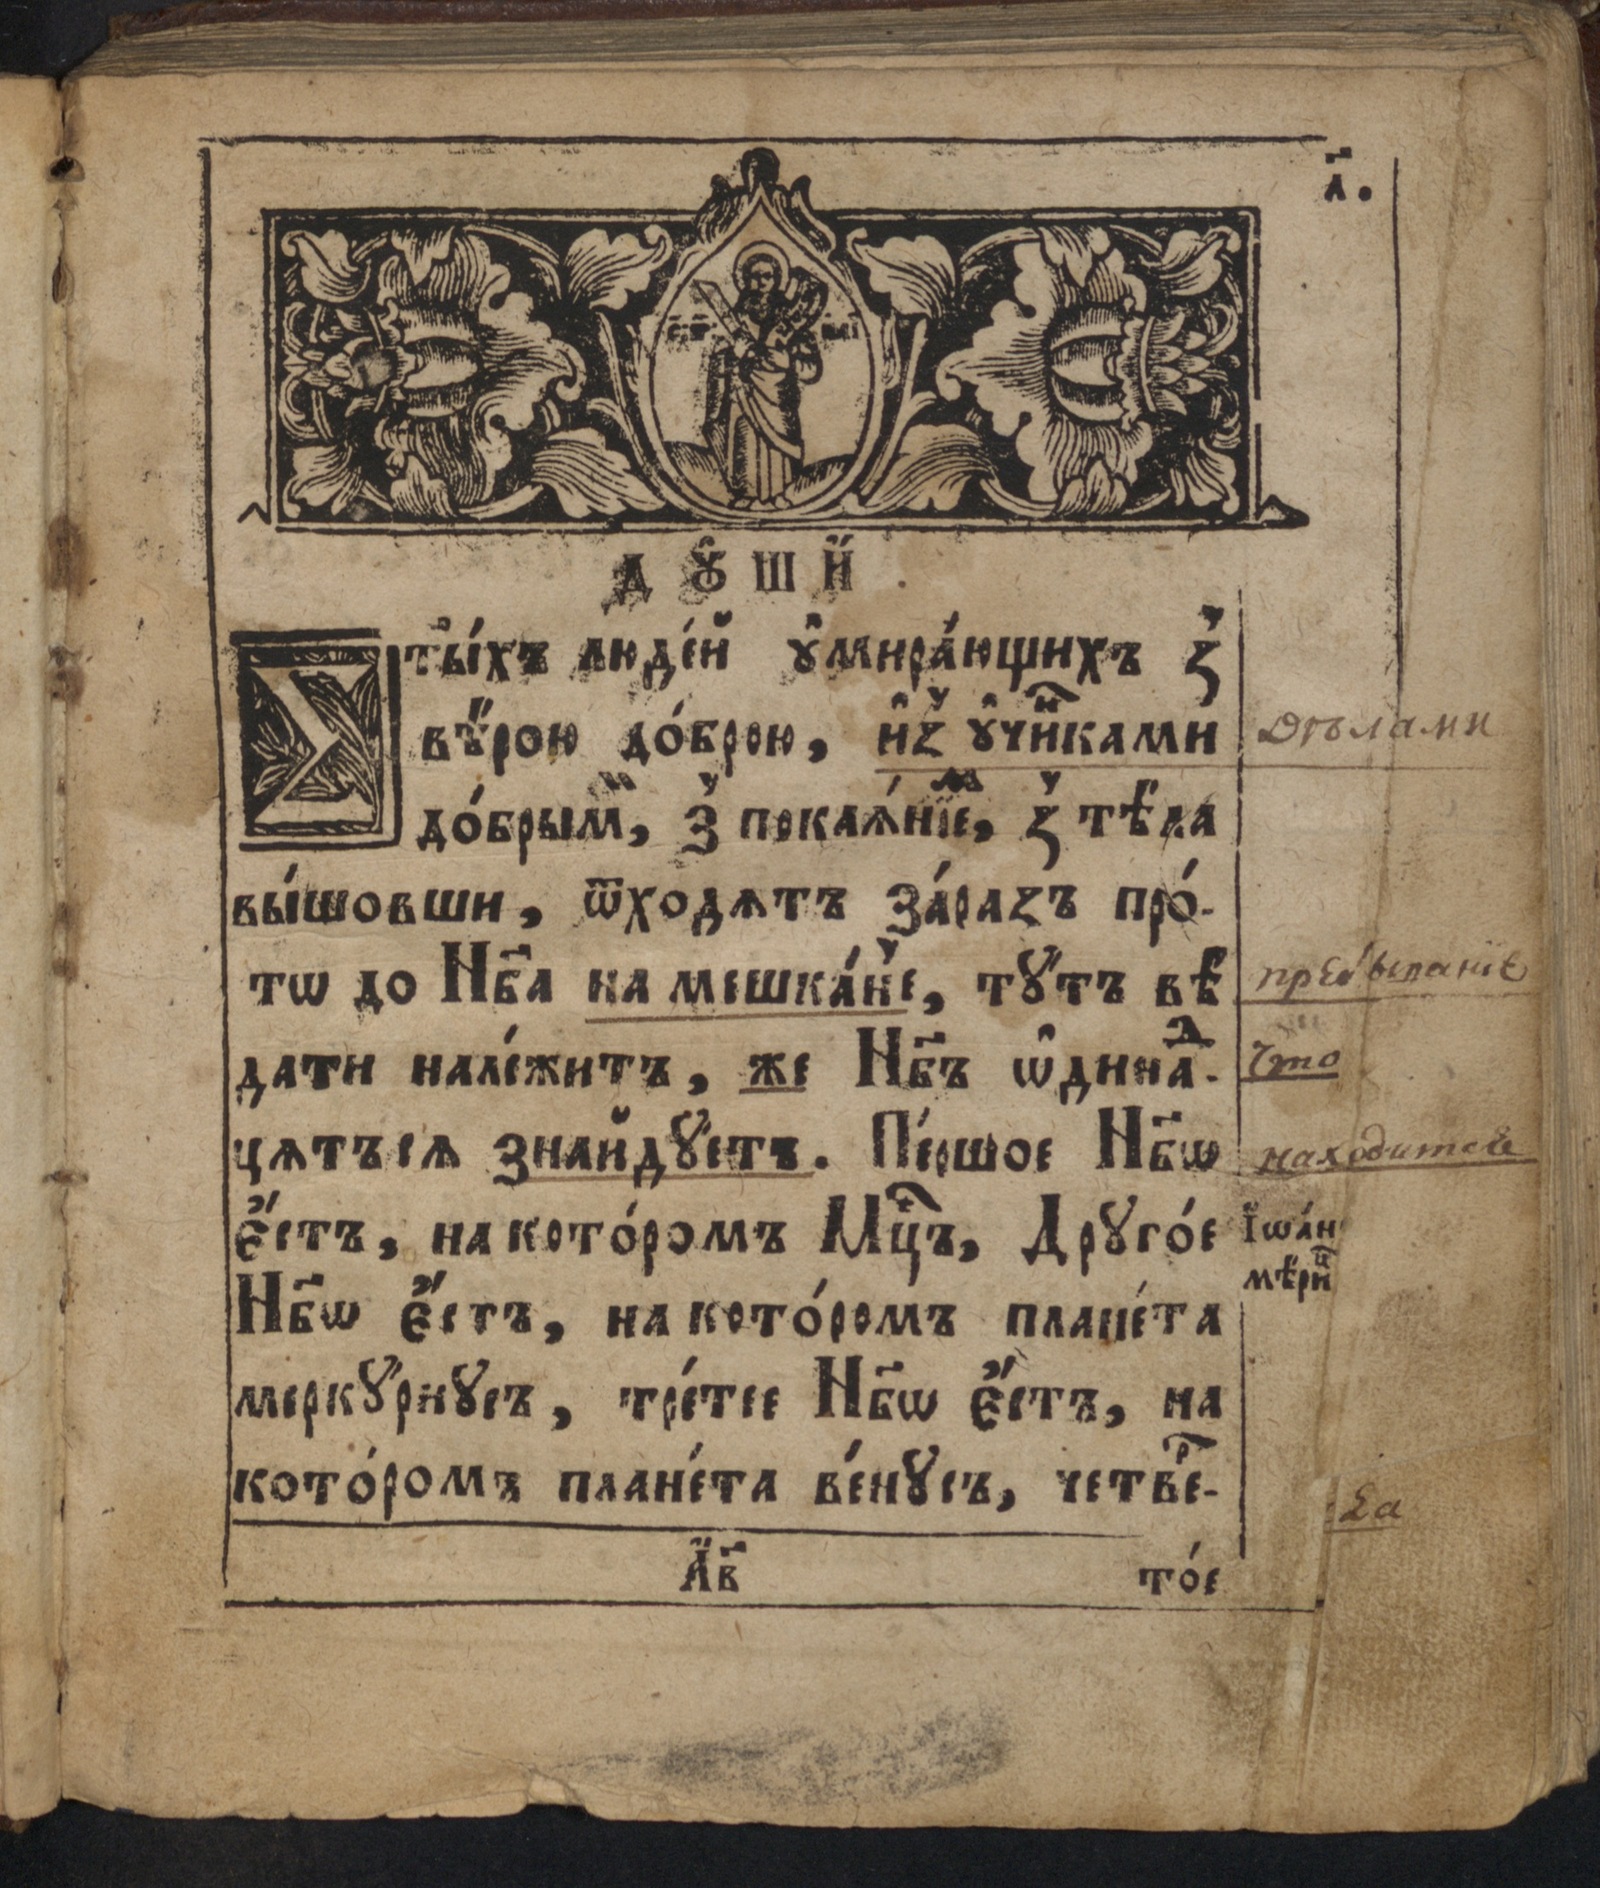 л҃.
ДꙊШИ
З
ты́хъ люде́й ᲂу҆мира́ющихъ ꙁ̾
вѣ́рою до́брою, и҆ꙁ̾ ᲂу҆чи́нками
до́брымⷨ, з̾ покаѧ́нїеⷨ, ꙁ̾ тѣ́ла
вы́шовши, ѿходѧтъ за́раꙁъ про́-
тѡ до Нб҃а на мешка́не, тꙋ́тъ вѣ́
дати нале́житъ, же Нб҃ъ ѡ҆динаⷣ-
цѧтъсѧ знайдꙋ́етъ. Пе́ршое Нб҃ѡ
є҆́стъ, на кото́ромъ Мцⷭ҇ъ, Дрꙋго́е
Нб҃ѡ є҆́стъ, на кото́ромъ плане́та
меркꙋ́риꙋсъ, тре́тее Нб҃ѡ є҆́стъ, на
кото́ромъ плане́та ве́нꙋсъ, четвеⷬ҇-
А҆в҃
то́е
дѣлами
пребыванїе
что
находитсѧ
І҆ѡа́н
мѣ́риⷰ